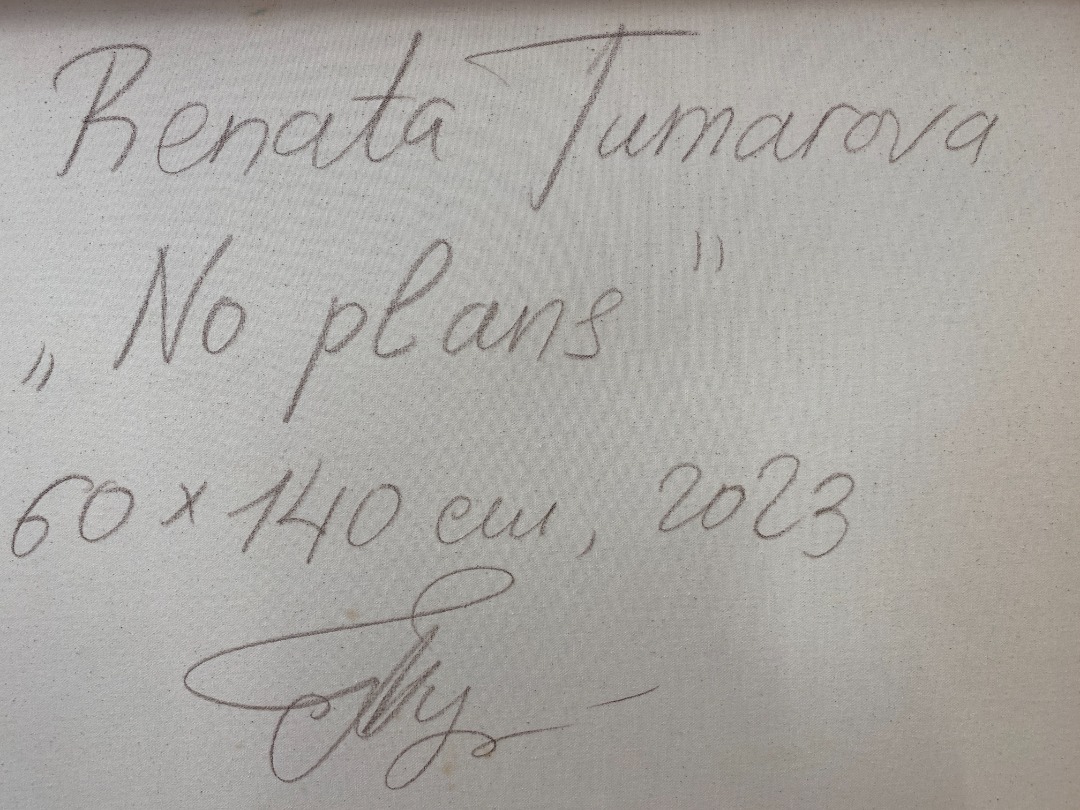 Renata Tumarova
„No plans"
60 × 140 cm, 2023